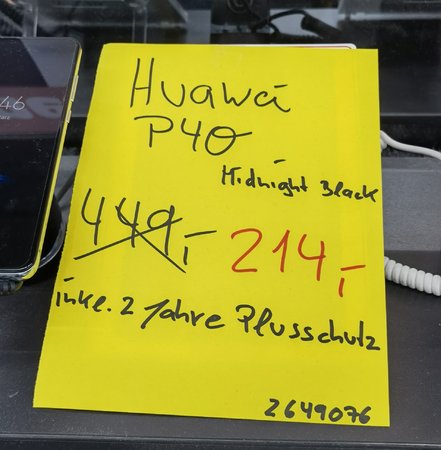 Huawei
P40
Midnight Black
449,- 214,-
inkl. 2 Jahre Plusschutz
2649076